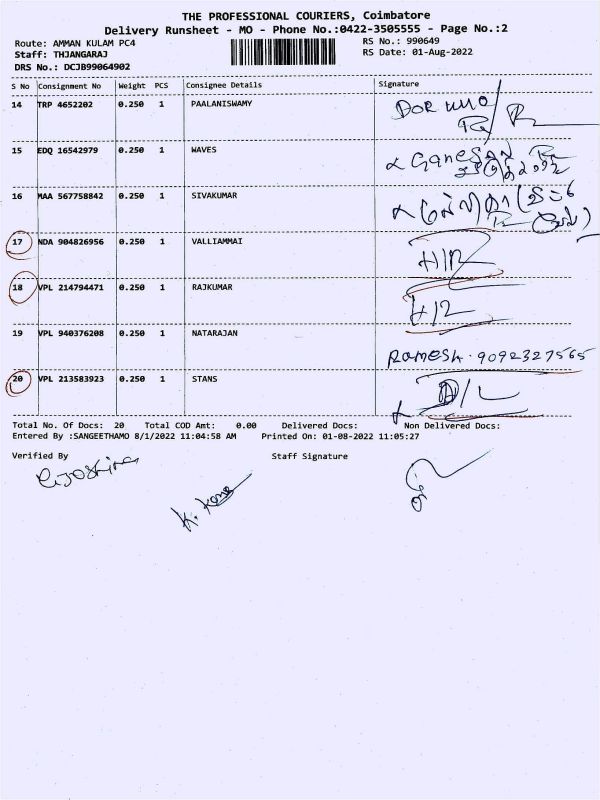 THE PROFESSIONAL COURIERS, Coimbatore
Delivery Runsheet - MO - Phone No.:0422-3505555 - Page No.:2
Route: AMMAN KULAM PC4
RS No.: 990649
Staff: THJANGARAJ
RS Date: 01-Aug-2022
DRS No.: DCJB99064902
S No Consignment No Weight PCS Consignee Details Signature
14 TRP 4652202 0.250 1 PAALANISWAMY
15 EDQ 16542979 0.250 1 WAVES Ganesan
16 MAA 567758842 0.250 1 SIVAKUMAR
17 NDA 904826956 0.250 1 VALLIAMMAI
18 VPL 214794471 0.250 1 RAJKUMAR
19 VPL 940376208 0.250 1 NATARAJAN Ramesh. 9092327565
20 VPL 213583923 0.250 1 STANS D/L
Total No. Of Docs: 20 Total COD Amt: 0.00 Delivered Docs: Non Delivered Docs:
Entered By :SANGEETHAMO 8/1/2022 11:04:58 AM Printed On: 01-08-2022 11:05:27
Verified By Staff Signature